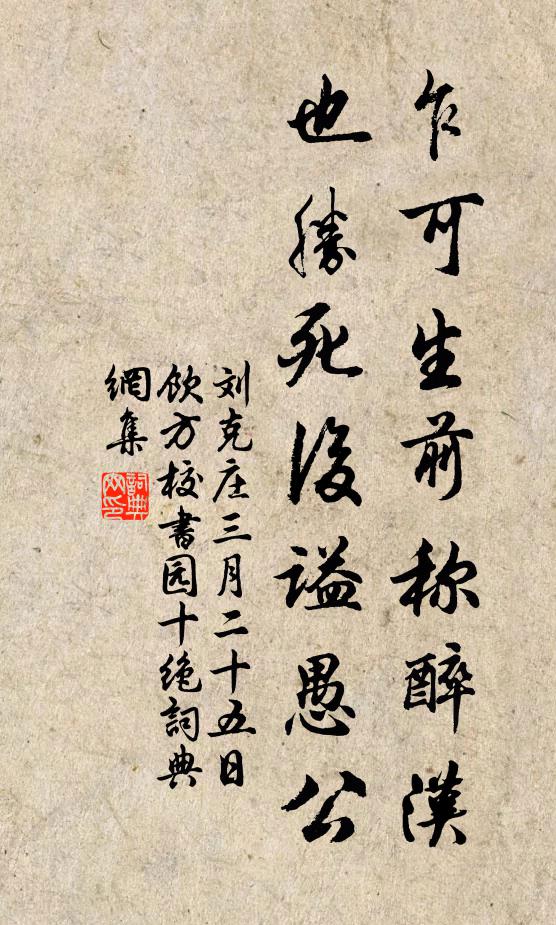 乍可生前称醉漢
也勝死後谥愚公
刘克庄三月二十五日
飲方校書园十绝詞典
網集
詞典
网印